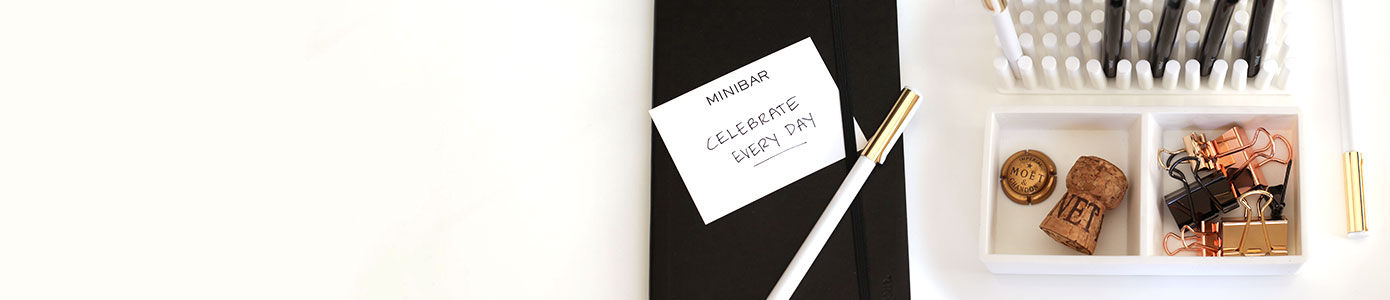 MINIBAR
CELEBRATE
EVERY DAY
IMPERIAL
MOËT
&
CHANDON
NET